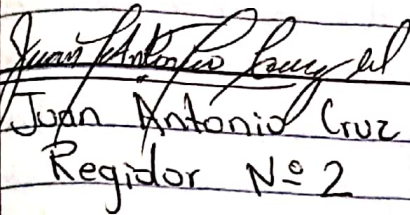 Juan Antonio Cruz
Juan Antonio Cruz
Regidor Nº 2